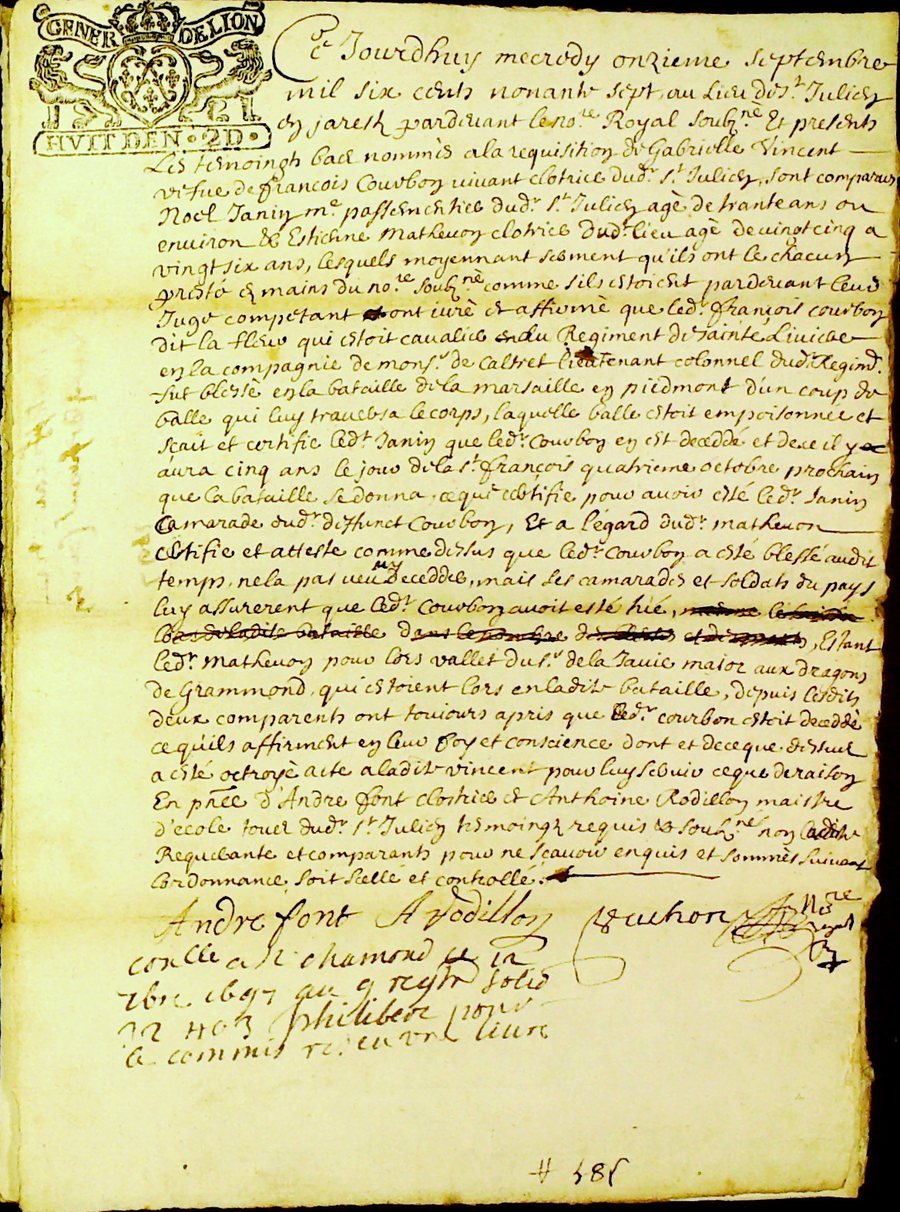 GENER DELION
HVIT DEN · 2D ·
Ce Jourdhuy mecredy onzieme septembre
mil six cents nonante sept, au Lieu de St Julien
en jarestz pardevant le nore Royal soubzné Et presents
Les temoingtz bace nommés a la requisition de Gabrielle Vincent
vefve de françois Courbon vivant clotrier dudt St Julien, sont comparus
Noel Janin me passementier dudt St Julien agé de trante ans ou
environ & Estienne Mathevon clotrier dudt lieu agé de vingt cinq a
vingt six ans, lesquels moyennant serment qu'ils ont le chacun
presté ez mains du nore soubzné comme s'ils estoient pardevant leur
Juge competant ont juré et affirmé que ledt françois courbon
dit la fleur qui estoit cavalier du Regiment de sainte Liviere
en la compagnie de monsr de Castret lieutenant colonnel dudt Regimt
fut blessé en la bataille de la marsaille en piedmont d'un coup de
balle qui luy traversa le corps, laquelle balle estoit empoisonnée et
sçait et certifie ledt Janin que ledt Courbon en est deceddé et de ce il y
aura cinq ans le jour de la St françois quatrieme octobre prochain
que la bataille se donna, ce qui certifie pour avoir esté ledt Janin
Camarade dudt deffunct Courbon, Et a l'egard dudt mathevon
certifie et atteste comme dessus que ledt Courbon a esté blessé audit
temps, ne la pas veu deceddé, mais ses camarades et soldats du pays
luy assurerent que ledt Courbon avoit esté tué,
bas de ladite bataille dans le nombre des et , Estant
ledt mathevon pour lors vallet du sr de la Javie maior aux dragons
de Grammond, qui estoient lors en ladite bataille, depuis lesdits
deux comparents ont toujours apris que ledt courbon estoit deceddé
ce qu'ils affirment en leur foy et conscience dont et de ce que dessus
a esté octroyé acte a ladite vincent pour luy servir ce que de raison
En pnce d'Andre font clostrier et Anthoine Rodillon maistre
d'ecole touts dudt St Julien temoingz requis & soubznés non ladite
Requerante et comparants pour ne sçavoir enquis et sommés suivant
l'ordonnance, soit scellé et controllé.
Andre font A rodillon vachon Nore royal
conlle a St chamond le 12
7bre 1697 au 9 regtre folio
philibert pour
le commis re: cu un livre
# 485